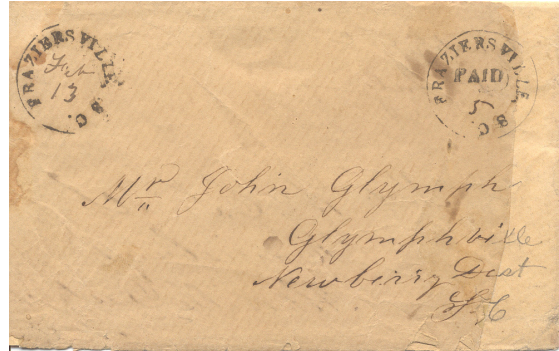 FRAZIERSVILLE S.C.
Feb
13
FRAZIERSVILLE S.C.
PAID
5
Mr John Glymph
Glymphville
Newberry Dist
S.C